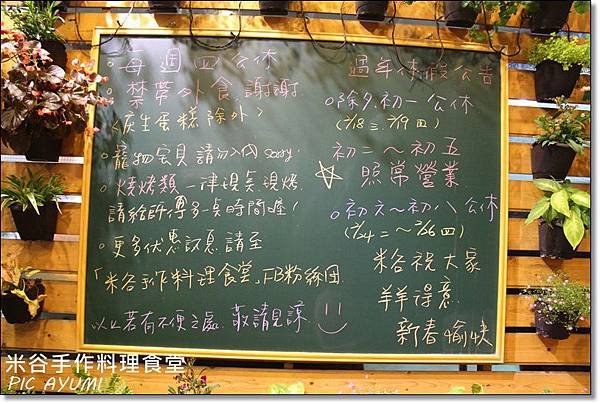 。每週四公休
。禁帶外食,謝謝.
〈慶生蛋糕除外〉
。寵物寶貝請勿入內 sorry.
。燒烤類一律現點現烤.
請給師傅多一點時間喔!
。更多優惠訊息請至
「米谷手作料理食堂」FB粉絲團.
以上若有不便之處.敬請見諒.
過年休假公告
。除夕.初一公休
(2/18三.2/19四)
初二~初五
☆照常營業
。初六~初八公休
(2/24二~2/26四)
米谷祝大家
羊羊得意.
新春愉快
米谷手作料理食堂
PIC AYUMI